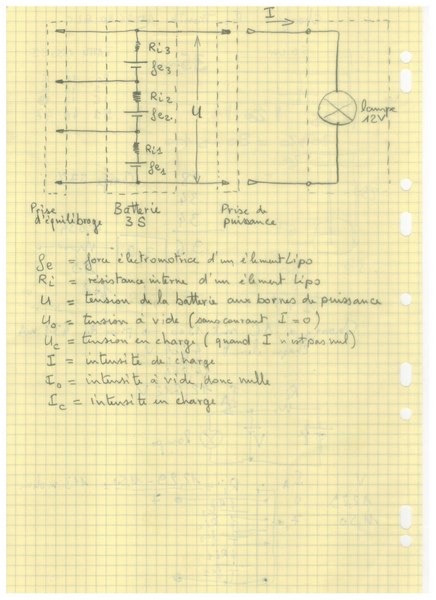 I
Ri3
fe3
Ri2
fe2
U
lampe
12V
Ri1
fe1
Prise
d'équilibrage
Batterie
3S
Prise de
puissance
fe = force électromotrice d'un élément Lipo
Ri = résistance interne d'un élément Lipo
U = tension de la batterie aux bornes de puissance
U0 = tension à vide (sans courant I=0)
Uc = tension en charge (quand I n'est pas nul)
I = intensité de charge
I0 = intensité à vide, donc nulle
Ic = intensité en charge